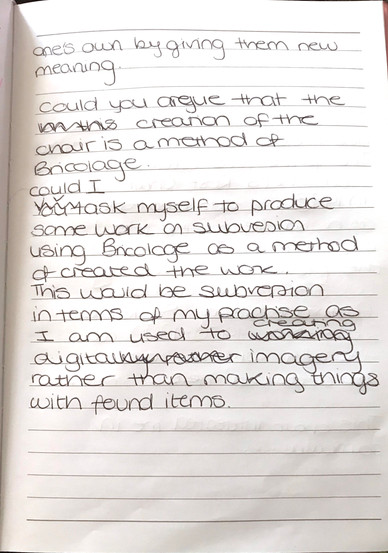 one's own by giving them new
meaning.
Could you argue that the
creation of the
chair is a method of
Bricolage.
could I
task myself to produce
some work on subversion
using Bricolage as a method
of created the work.
This would be subversion
in terms of my practise as
creating
I am used to
digital imagery
rather than making things
with found items.